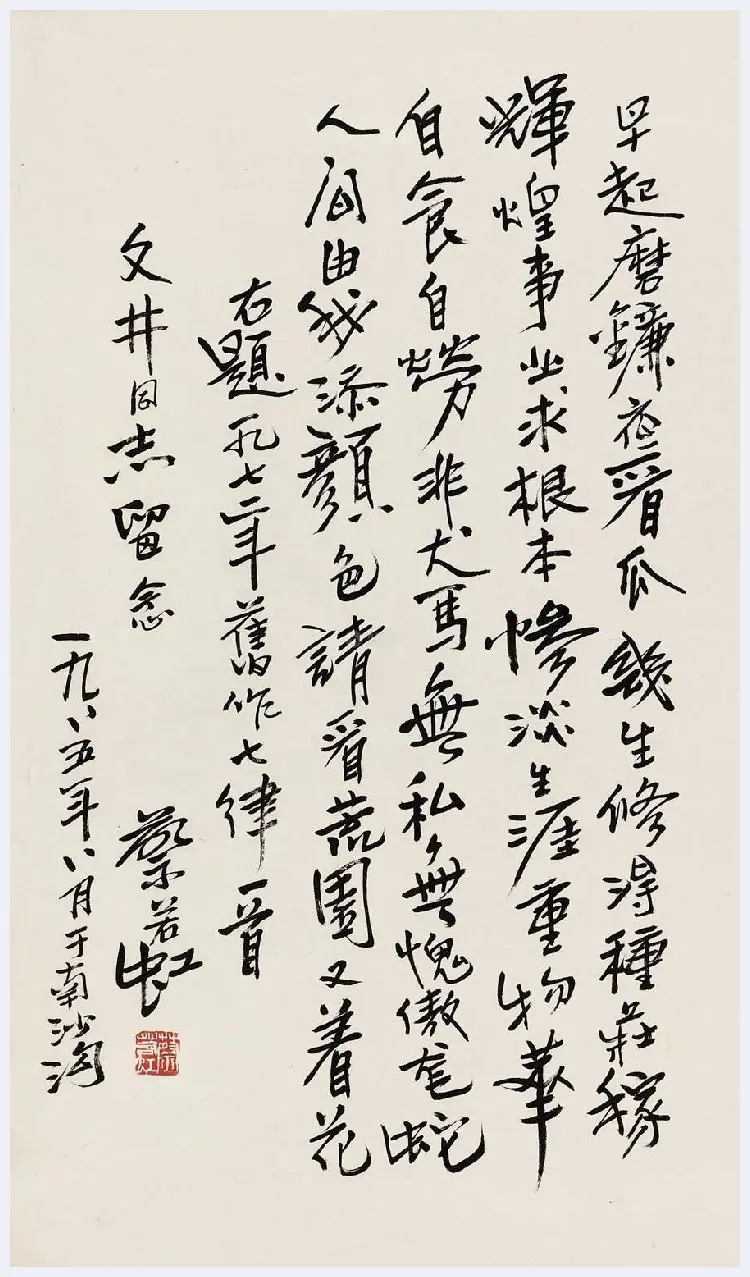 早起磨鐮夜看瓜幾生修得種莊稼
輝煌事业求根本慘淡生涯重物華
自食自勞非犬馬無私無愧傲龍蛇
人间由我添顏色請看荒園又着花
右題一九七二年舊作七律一首
文井同志留念
蔡若虹
一九八五年八月于南沙沟
蔡若虹